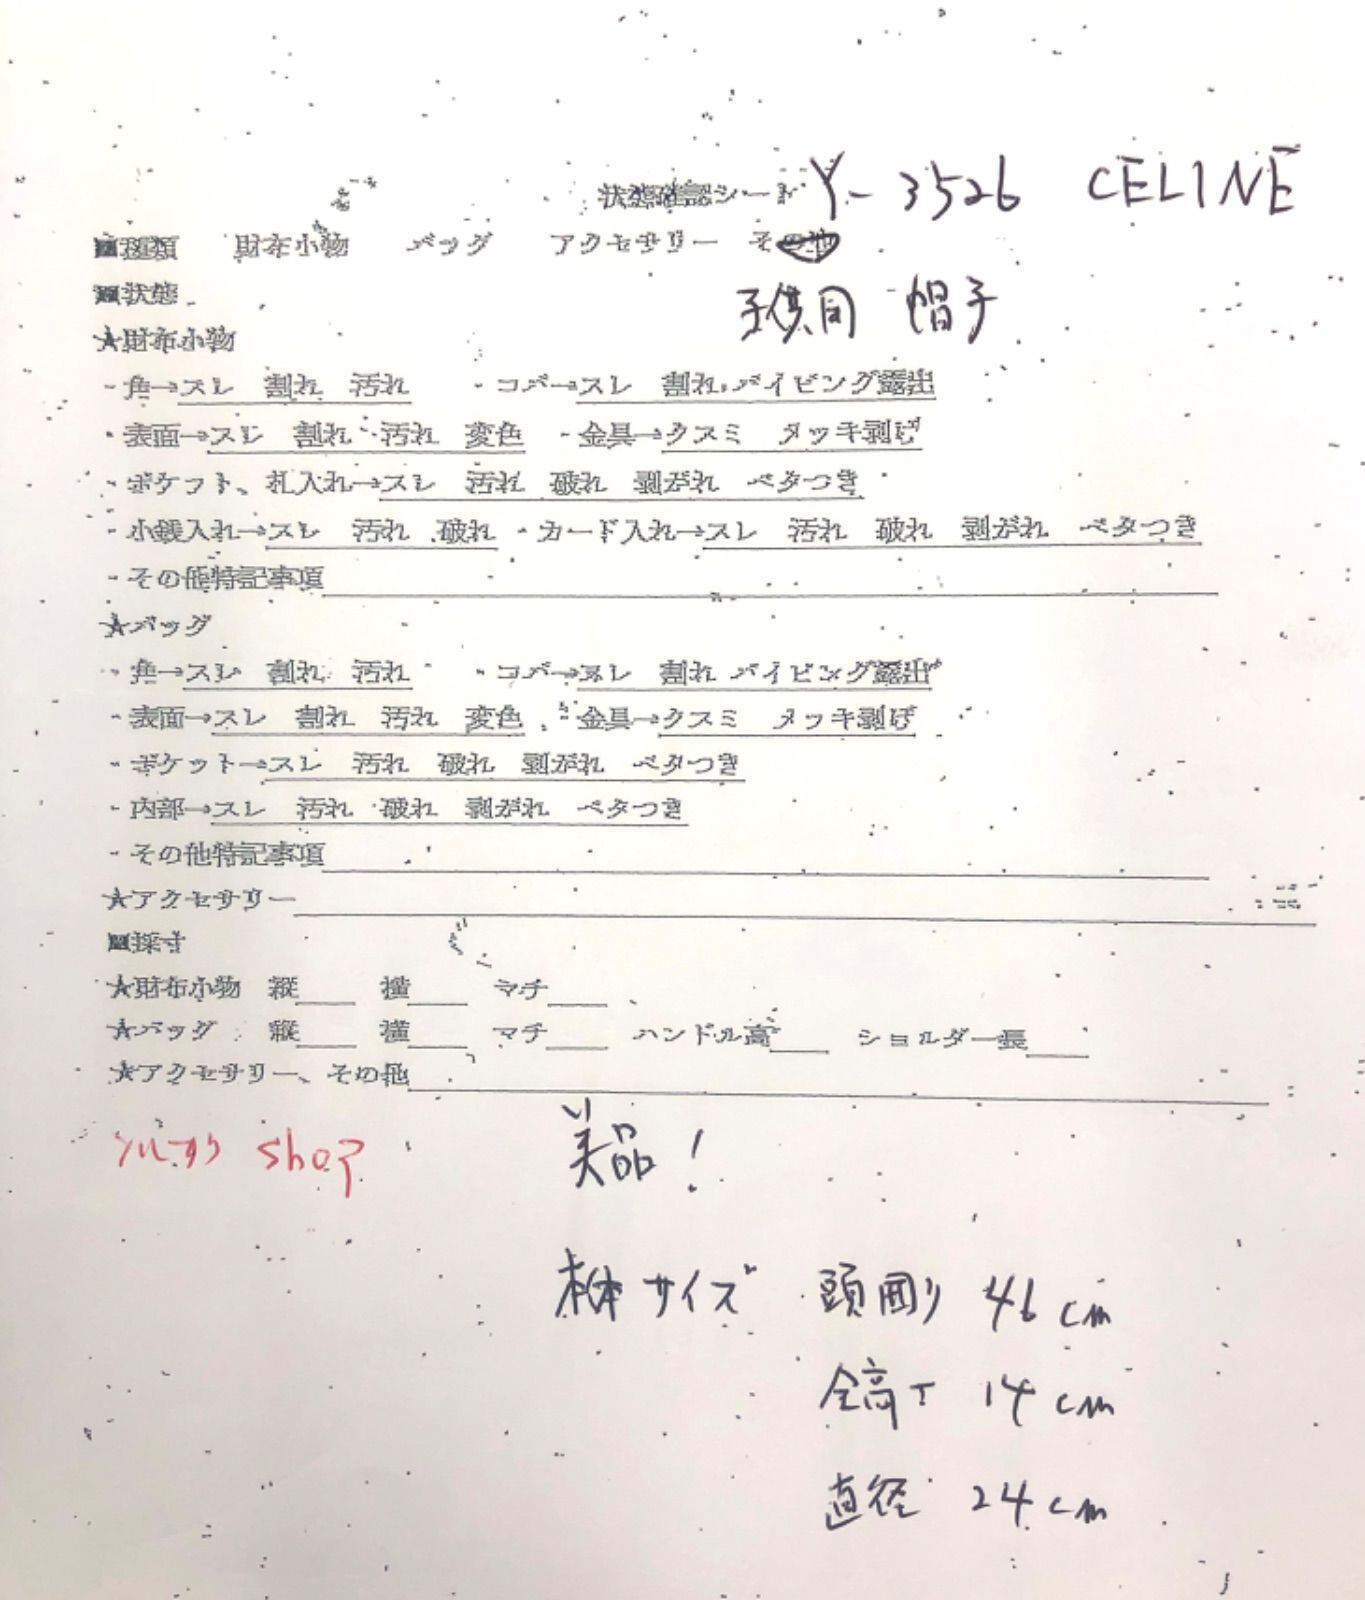 状態確認シート Y-3526 CELINE
■種類 財布小物 バッグ アクセサリー その他
■状態 子供用 帽子
★財布小物
・角→スレ 割れ 汚れ ・コバ→スレ 割れ パイピング露出
・表面→スレ 割れ 汚れ 変色 ・金具→クスミ メッキ剥げ
・ポケット、札入れ→スレ 汚れ 破れ 剥がれ ベタつき
・小銭入れ→スレ 汚れ 破れ ・カード入れ→スレ 汚れ 破れ 剥がれ ベタつき
・その他特記事項
★バッグ
・角→スレ 割れ 汚れ ・コバ→スレ 割れ パイピング露出
・表面→スレ 割れ 汚れ 変色 ・金具→クスミ メッキ剥げ
・ポケット→スレ 汚れ 破れ 剥がれ ベタつき
・内部→スレ 汚れ 破れ 剥がれ ベタつき
・その他特記事項
★アクセサリー
■採寸
★財布小物 縦 横 マチ
★バッグ 縦 横 マチ ハンドル高 ショルダー長
★アクセサリー、その他
shop 美品！
本体サイズ 頭囲り 46cm
全高 14cm
直径 24cm